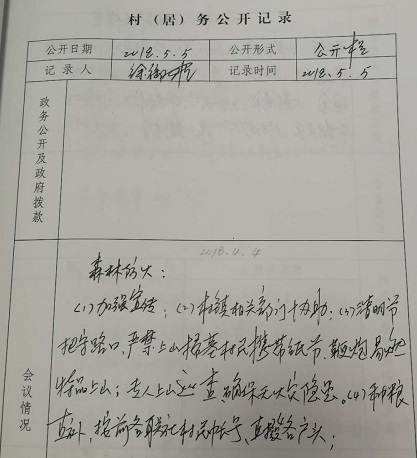 村（居）务公开记录
公开日期 2018.5.5 公开形式 公开栏
记录人 徐 记录时间 2018.5.5
政务公开及政府拨款
2018.4.4
会议情况
森林防火：
(1)加强宣传；(2)村镇相关部门协助；(3)清明节
把守路口，严禁上山扫墓村民携带纸节、鞭炮易燃
物品上山；专人上山巡查确保无火灾隐患。(4)和粮
直补，按前各联社村民帐号，直发各户头；